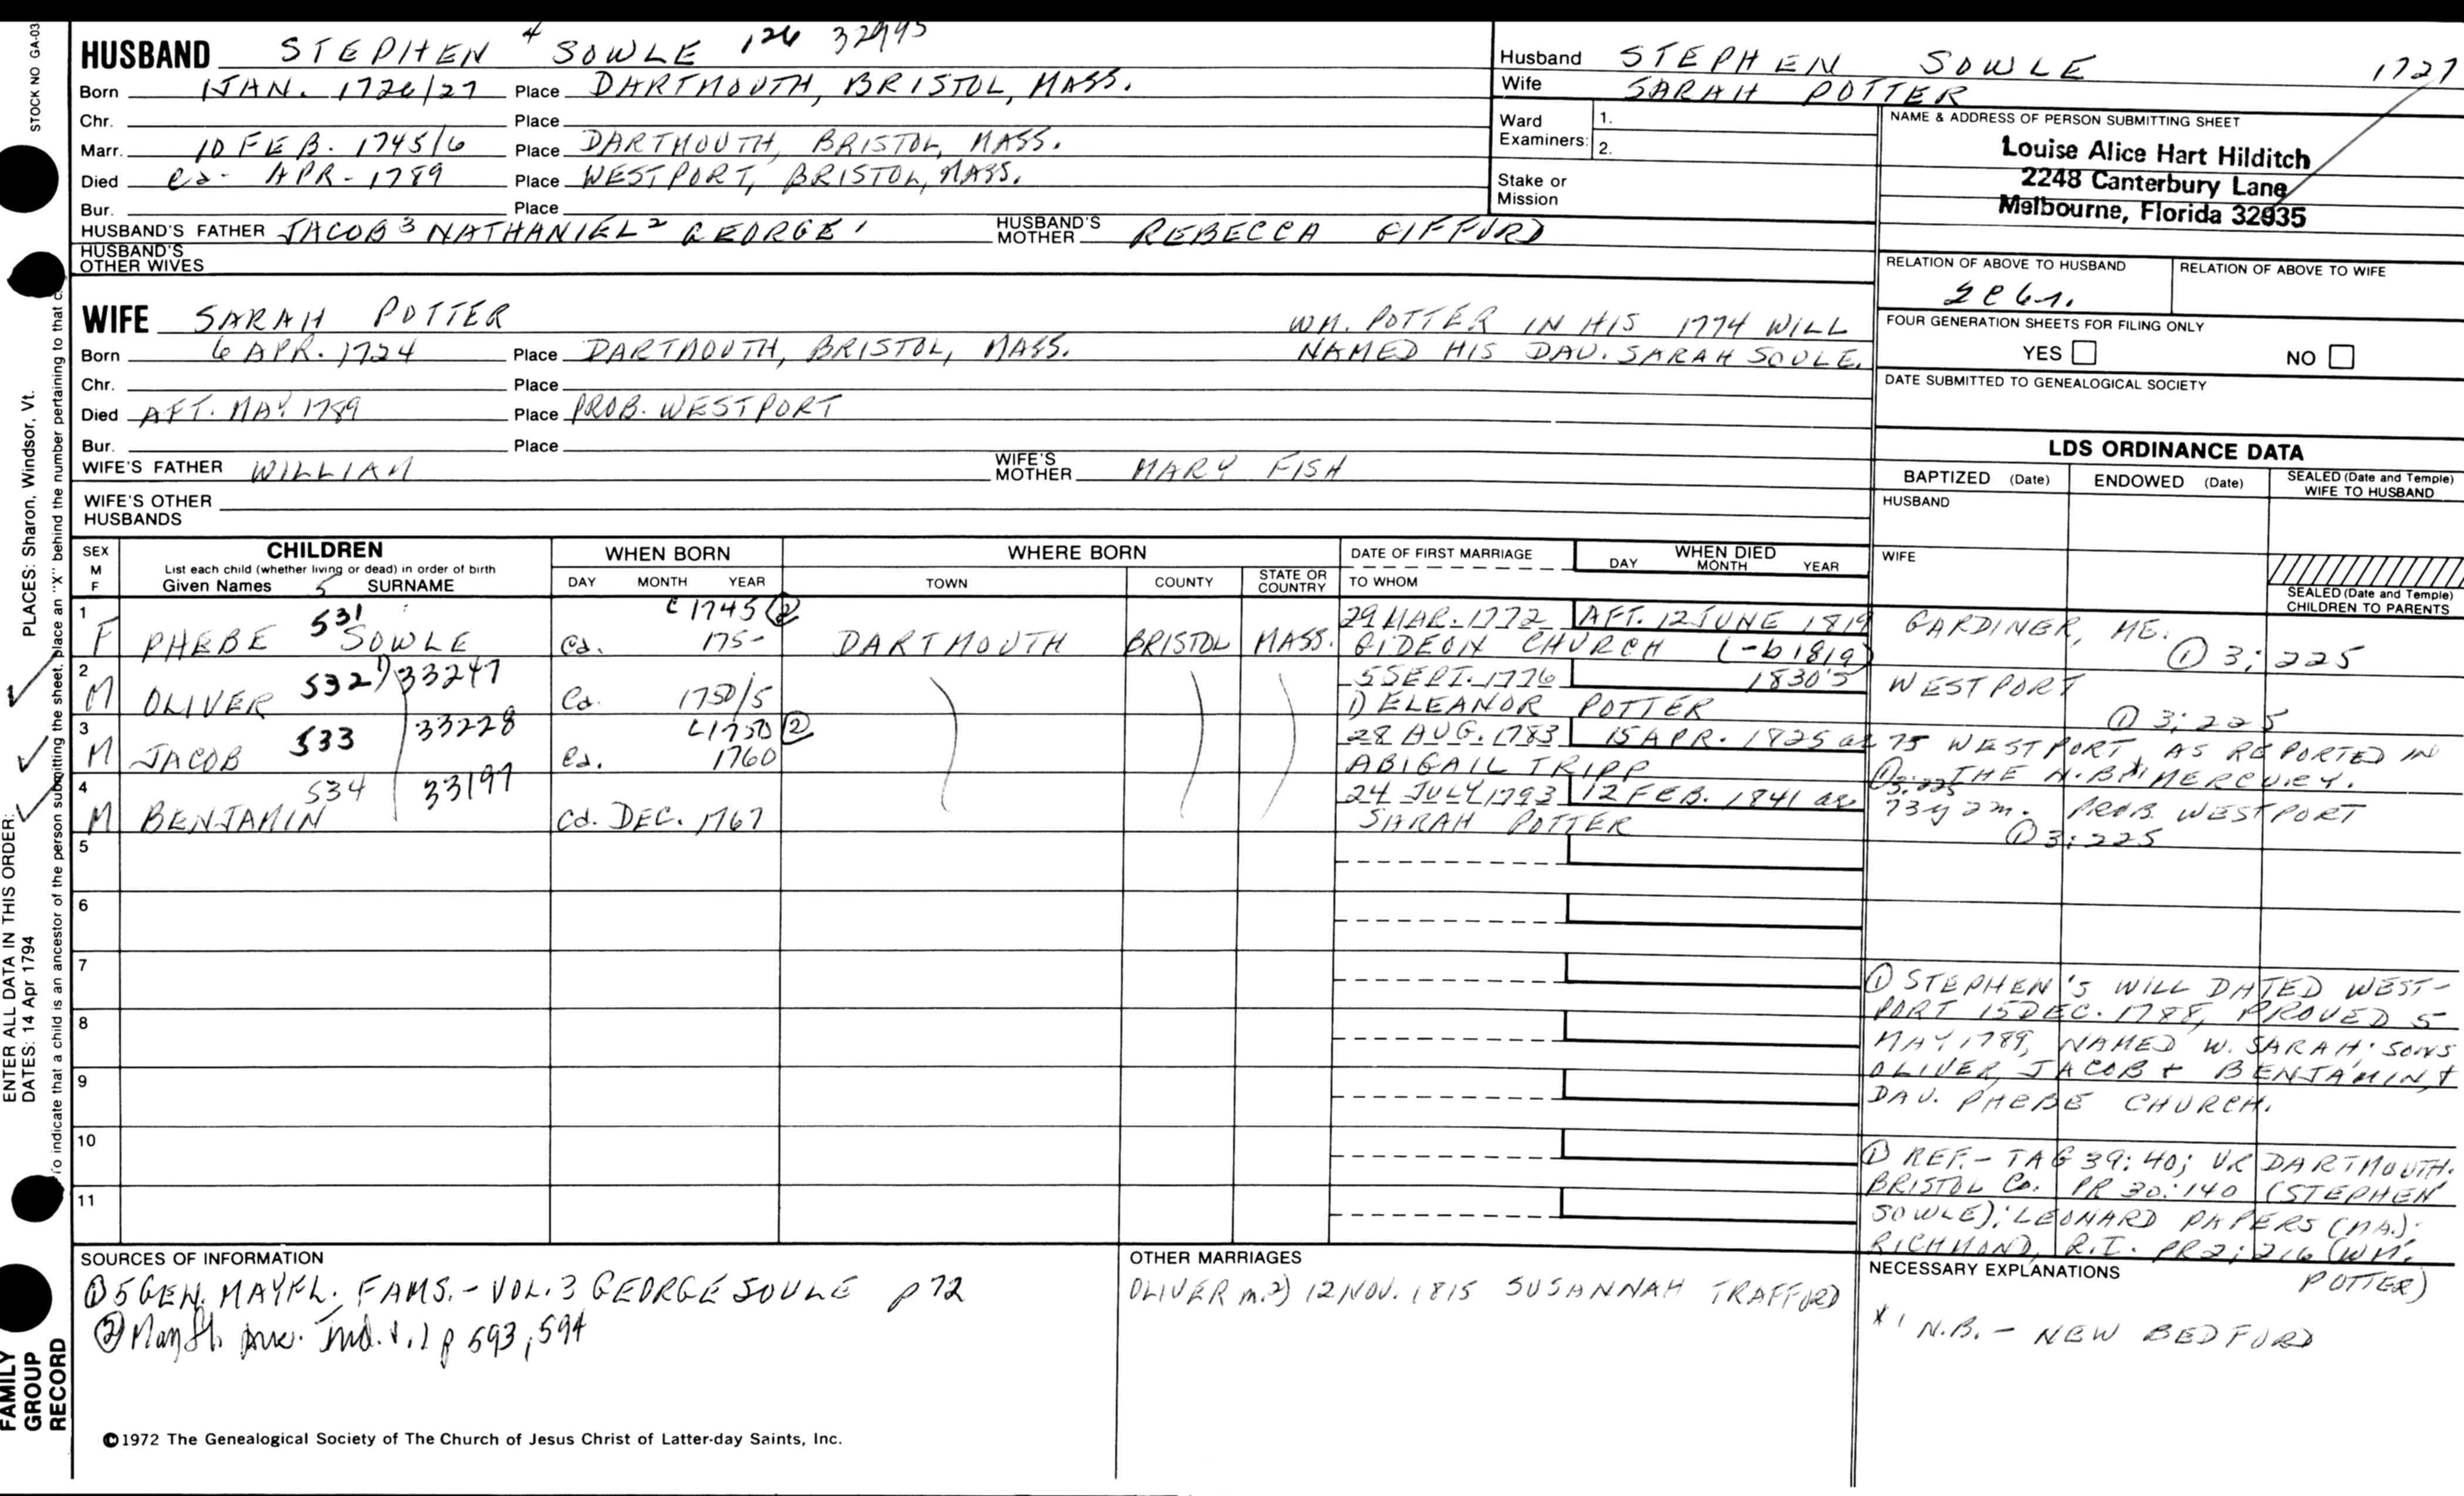 STOCK NO GA-03
HUSBAND STEPHEN 4 SOWLE 126 32995
Born 1 JAN. 1726/27 Place DARTMOUTH, BRISTOL, MASS.
Chr. Place
Marr. 10 FEB. 1745/6 Place DARTMOUTH, BRISTOL, MASS.
Died ca. APR - 1789 Place WESTPORT, BRISTOL, MASS.
Bur. Place
HUSBAND'S FATHER JACOB 3 NATHANIEL 2 GEORGE 1 HUSBAND'S MOTHER REBECCA GIFFORD
HUSBAND'S OTHER WIVES
Husband STEPHEN SOWLE 1727
Wife SARAH POTTER
Ward Examiners: 1.
2.
Stake or Mission
NAME & ADDRESS OF PERSON SUBMITTING SHEET
Louise Alice Hart Hilditch
2248 Canterbury Lane
Melbourne, Florida 32935
RELATION OF ABOVE TO HUSBAND RELATION OF ABOVE TO WIFE
FOUR GENERATION SHEETS FOR FILING ONLY
YES NO
DATE SUBMITTED TO GENEALOGICAL SOCIETY
WIFE SARAH POTTER WM. POTTER IN HIS 1774 WILL
NAMED HIS DAU. SARAH SOULE.
Born 6 APR. 1724 Place DARTMOUTH, BRISTOL, MASS.
Chr. Place
Died AFT. MAY 1789 Place PROB. WESTPORT
Bur. Place
WIFE'S FATHER WILLIAM WIFE'S MOTHER MARY FISH
WIFE'S OTHER HUSBANDS
LDS ORDINANCE DATA
BAPTIZED (Date) ENDOWED (Date) SEALED (Date and Temple) WIFE TO HUSBAND
HUSBAND
WIFE
SEALED (Date and Temple) CHILDREN TO PARENTS
SEX M F
CHILDREN
List each child (whether living or dead) in order of birth
Given Names 5 SURNAME
WHEN BORN
DAY MONTH YEAR
WHERE BORN
TOWN COUNTY STATE OR COUNTRY
DATE OF FIRST MARRIAGE
TO WHOM
WHEN DIED
DAY MONTH YEAR
1 531 c 1745 ② 29 MAR. 1772 AFT. 12 JUNE 1819 GARDINER, ME.
F PHEBE SOWLE ca. 175- DARTMOUTH BRISTOL MASS. GIDEON CHURCH (-b 1819) ① 3:225
2 532 1) 33247 5 SEPT. 1776 1830'S WESTPORT
M OLIVER ca. 1750/5 1) ELEANOR POTTER ① 3:225
3 533 33228 c1750 ② 28 AUG. 1783 15 APR. 1825 ae 75 WESTPORT AS REPORTED IN
M JACOB ca. 1760 ABIGAIL TRIPP ① 3:225 THE N.B.*1 MERCURY.
4 534 33197 24 JULY 1793 12 FEB. 1841 ae 73y 2m. PROB. WESTPORT
M BENJAMIN ca. DEC. 1767 SARAH POTTER ① 3:225
5
6
7
8
9
10
11
① STEPHEN'S WILL DATED WEST-
PORT 15 DEC. 1788, PROVED 5
MAY 1789, NAMED W. SARAH; SONS
OLIVER, JACOB + BENJAMIN, +
DAU. PHEBE CHURCH.
① REF. - TAG 39:40; VR DARTMOUTH.
BRISTOL Co. PR 30:140 (STEPHEN
SOWLE); LEONARD PAPERS (MA.);
RICHMOND, R.I. PR 2:216 (WM.
POTTER)
SOURCES OF INFORMATION
① 5 GEN. MAYFL. FAMS. - VOL. 3 GEORGE SOULE p 72
② v. 1 p 593, 594
OTHER MARRIAGES
OLIVER m. 2) 12 NOV. 1815 SUSANNAH TRAFFORD
NECESSARY EXPLANATIONS
*1 N.B. - NEW BEDFORD
©1972 The Genealogical Society of The Church of Jesus Christ of Latter-day Saints, Inc.
FAMILY
GROUP
RECORD
ENTER ALL DATA IN THIS ORDER:
DATES: 14 Apr 1794
PLACES: Sharon, Windsor, Vt.
To indicate that a child is an ancestor of the person submitting the sheet, place an "X" behind the number pertaining to that c